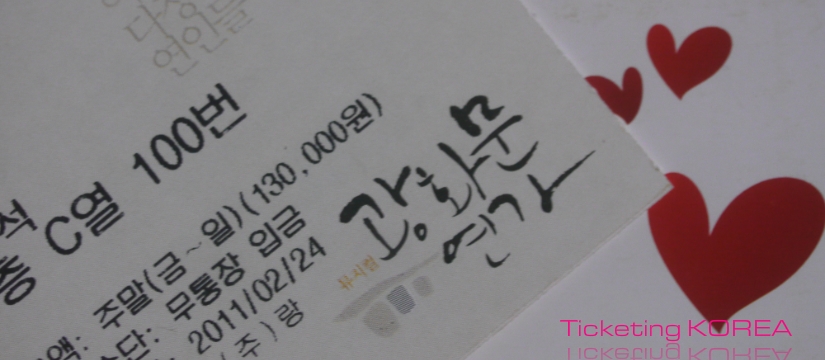 다정
연인들
석
층 C열 100번
액: 주말(금~일)(130,000원)
수단: 무통장 입금
2011/02/24
(주)랑
뮤지컬
광화문
연가
Ticketing KOREA